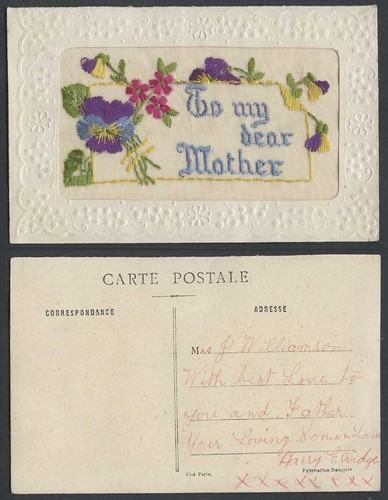 To my
dear
Mother
CARTE POSTALE
CORRESPONDANCE
ADRESSE
Mrs J Williamson
With best Love to
you and Father
Your Loving Son in Law
Harry Etridge
Visé Paris.
Fabrication française.
x x x x x x x